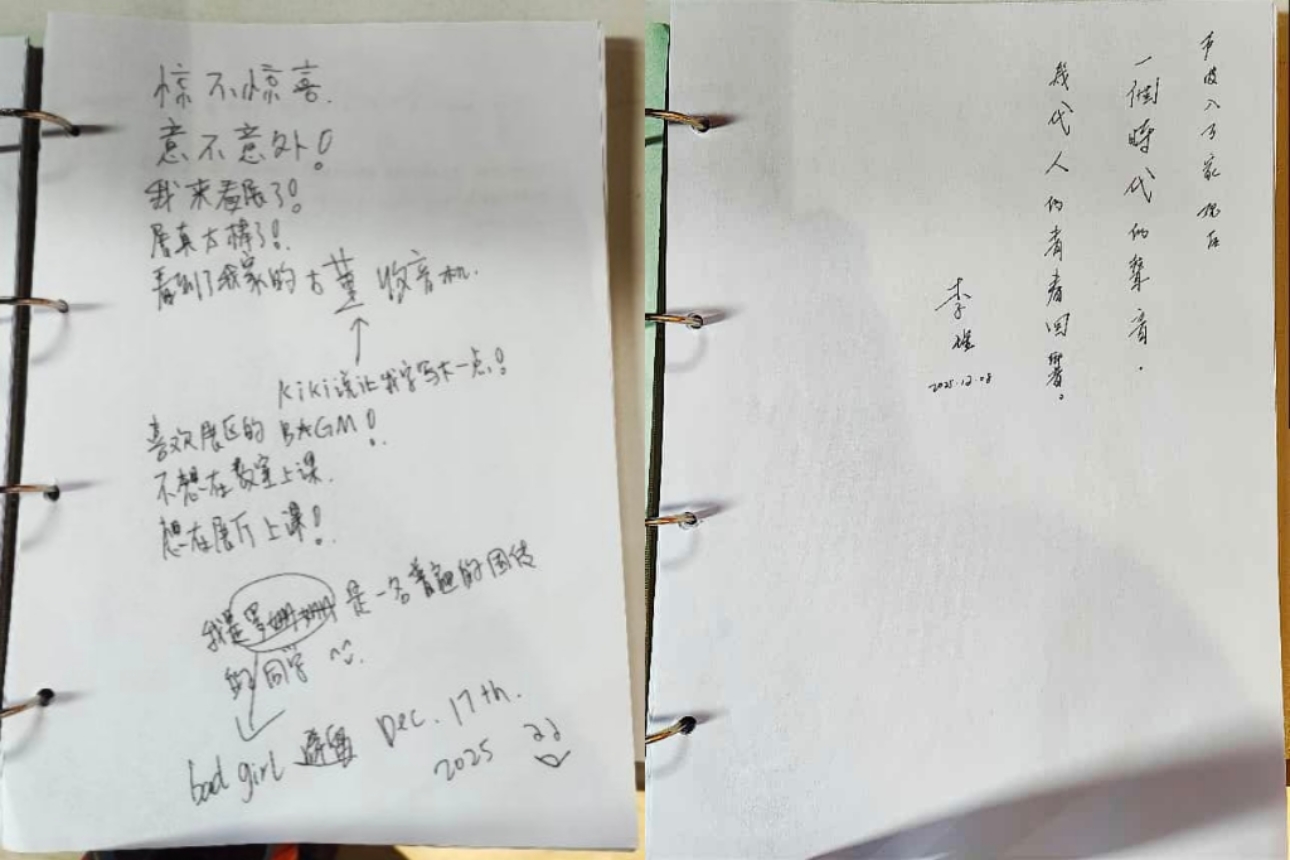 惊不惊喜.
意不意外!
我来看展了!
展真太棒了!
看到了我家的古董收音机.
↑
kiki说让我字写大一点!
喜欢展区的BAGM!
不想在教室上课.
想在展厅上课!
我是罗姗姗是一名普通的国传
的同学
bad girl Dec. 17th.
2025
一個時代的聲音.
幾代人的青春回響。
李
2025.12.08